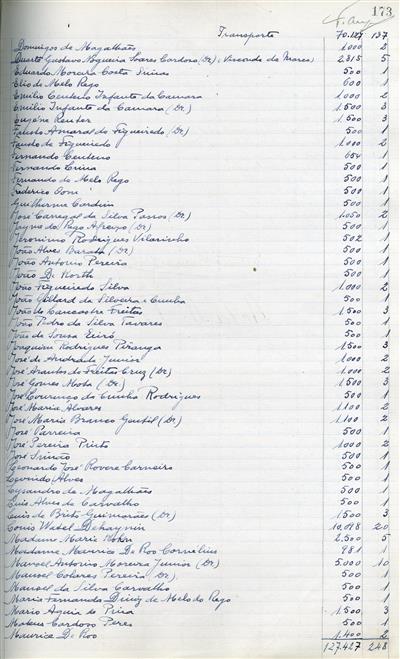 173
Transporte 70.127 137
Domingos de Magalhães 1.000 2
Duarte Gustavo Nogueira Soares Cardoso (Dr), Visconde de Nares) 2.315 5
Eduardo Moreira Costa 500 1
Elio de Melo Rego 600 1
Emilio Centeno Infante da Camara 1.000 2
Emilio Infante da Camara (Dr) 1.500 3
Eugène Reuter 1.500 3
Fausto Amaral de Figueiredo (Dr) 500 1
Fausto de Figueiredo 1.000 2
Fernando Centeno 654 1
Fernando 500 1
Fernando de Melo Rego 500 1
Frederico 500 1
Guilherme Cardim 500 1
José Carregal da Silva Passos (Dr) 1.050 2
Jayme do Rego Afreixo (Dr) 500 1
Jeronimo Rodrigues Vilarinho 502 1
João Alves Barata (Dr) 500 1
João Antonio Pereira 500 1
João D. Korth 500 1
João Figueiredo Silva 1.000 2
João Gellard da Silveira e Cunha 500 1
João de Lancastre Freitas 1.500 3
João Pedro da Silva Tavares 500 1
João de Sousa Eiró 500 1
Joaquim Rodrigues Piranga 1.500 3
José de Andrade Junior 1.000 2
José Arantes de Freitas Cruz (Dr) 1.000 2
José Gomes Mota (Dr) 1.500 3
José Lourenço da Cunha Rodrigues 500 1
José Maria Alvares 1.100 2
José Maria Branco Gentil (Dr) 1.100 2
José Parreira 500 1
José Pereira Pinto 1.000 2
José Simão 500 1
Leonardo José Rovere Carneiro 500 1
Leonido Alves 500 1
Lysandro de Magalhães 500 1
Luis Alves de Carvalho 500 1
Luis de Brito Guimarães (Dr) 1.500 3
Louis Watel Dehaynin 10.098 20
Madame Marie 2.500 5
Madame Maurice De Roo Cornélius 981 1
Manoel Antonio Moreira Junior (Dr) 5.000 10
Manoel Colares Pereira (Dr) 500 1
Manoel da Silva Carvalho 500 1
Maria Fernanda Diniz de Melo do Rego 500 1
Mario Aguia de Pina 1.500 3
Mateus Cardoso Peres 500 1
Maurice De Roo 1.400 2
127.427 248